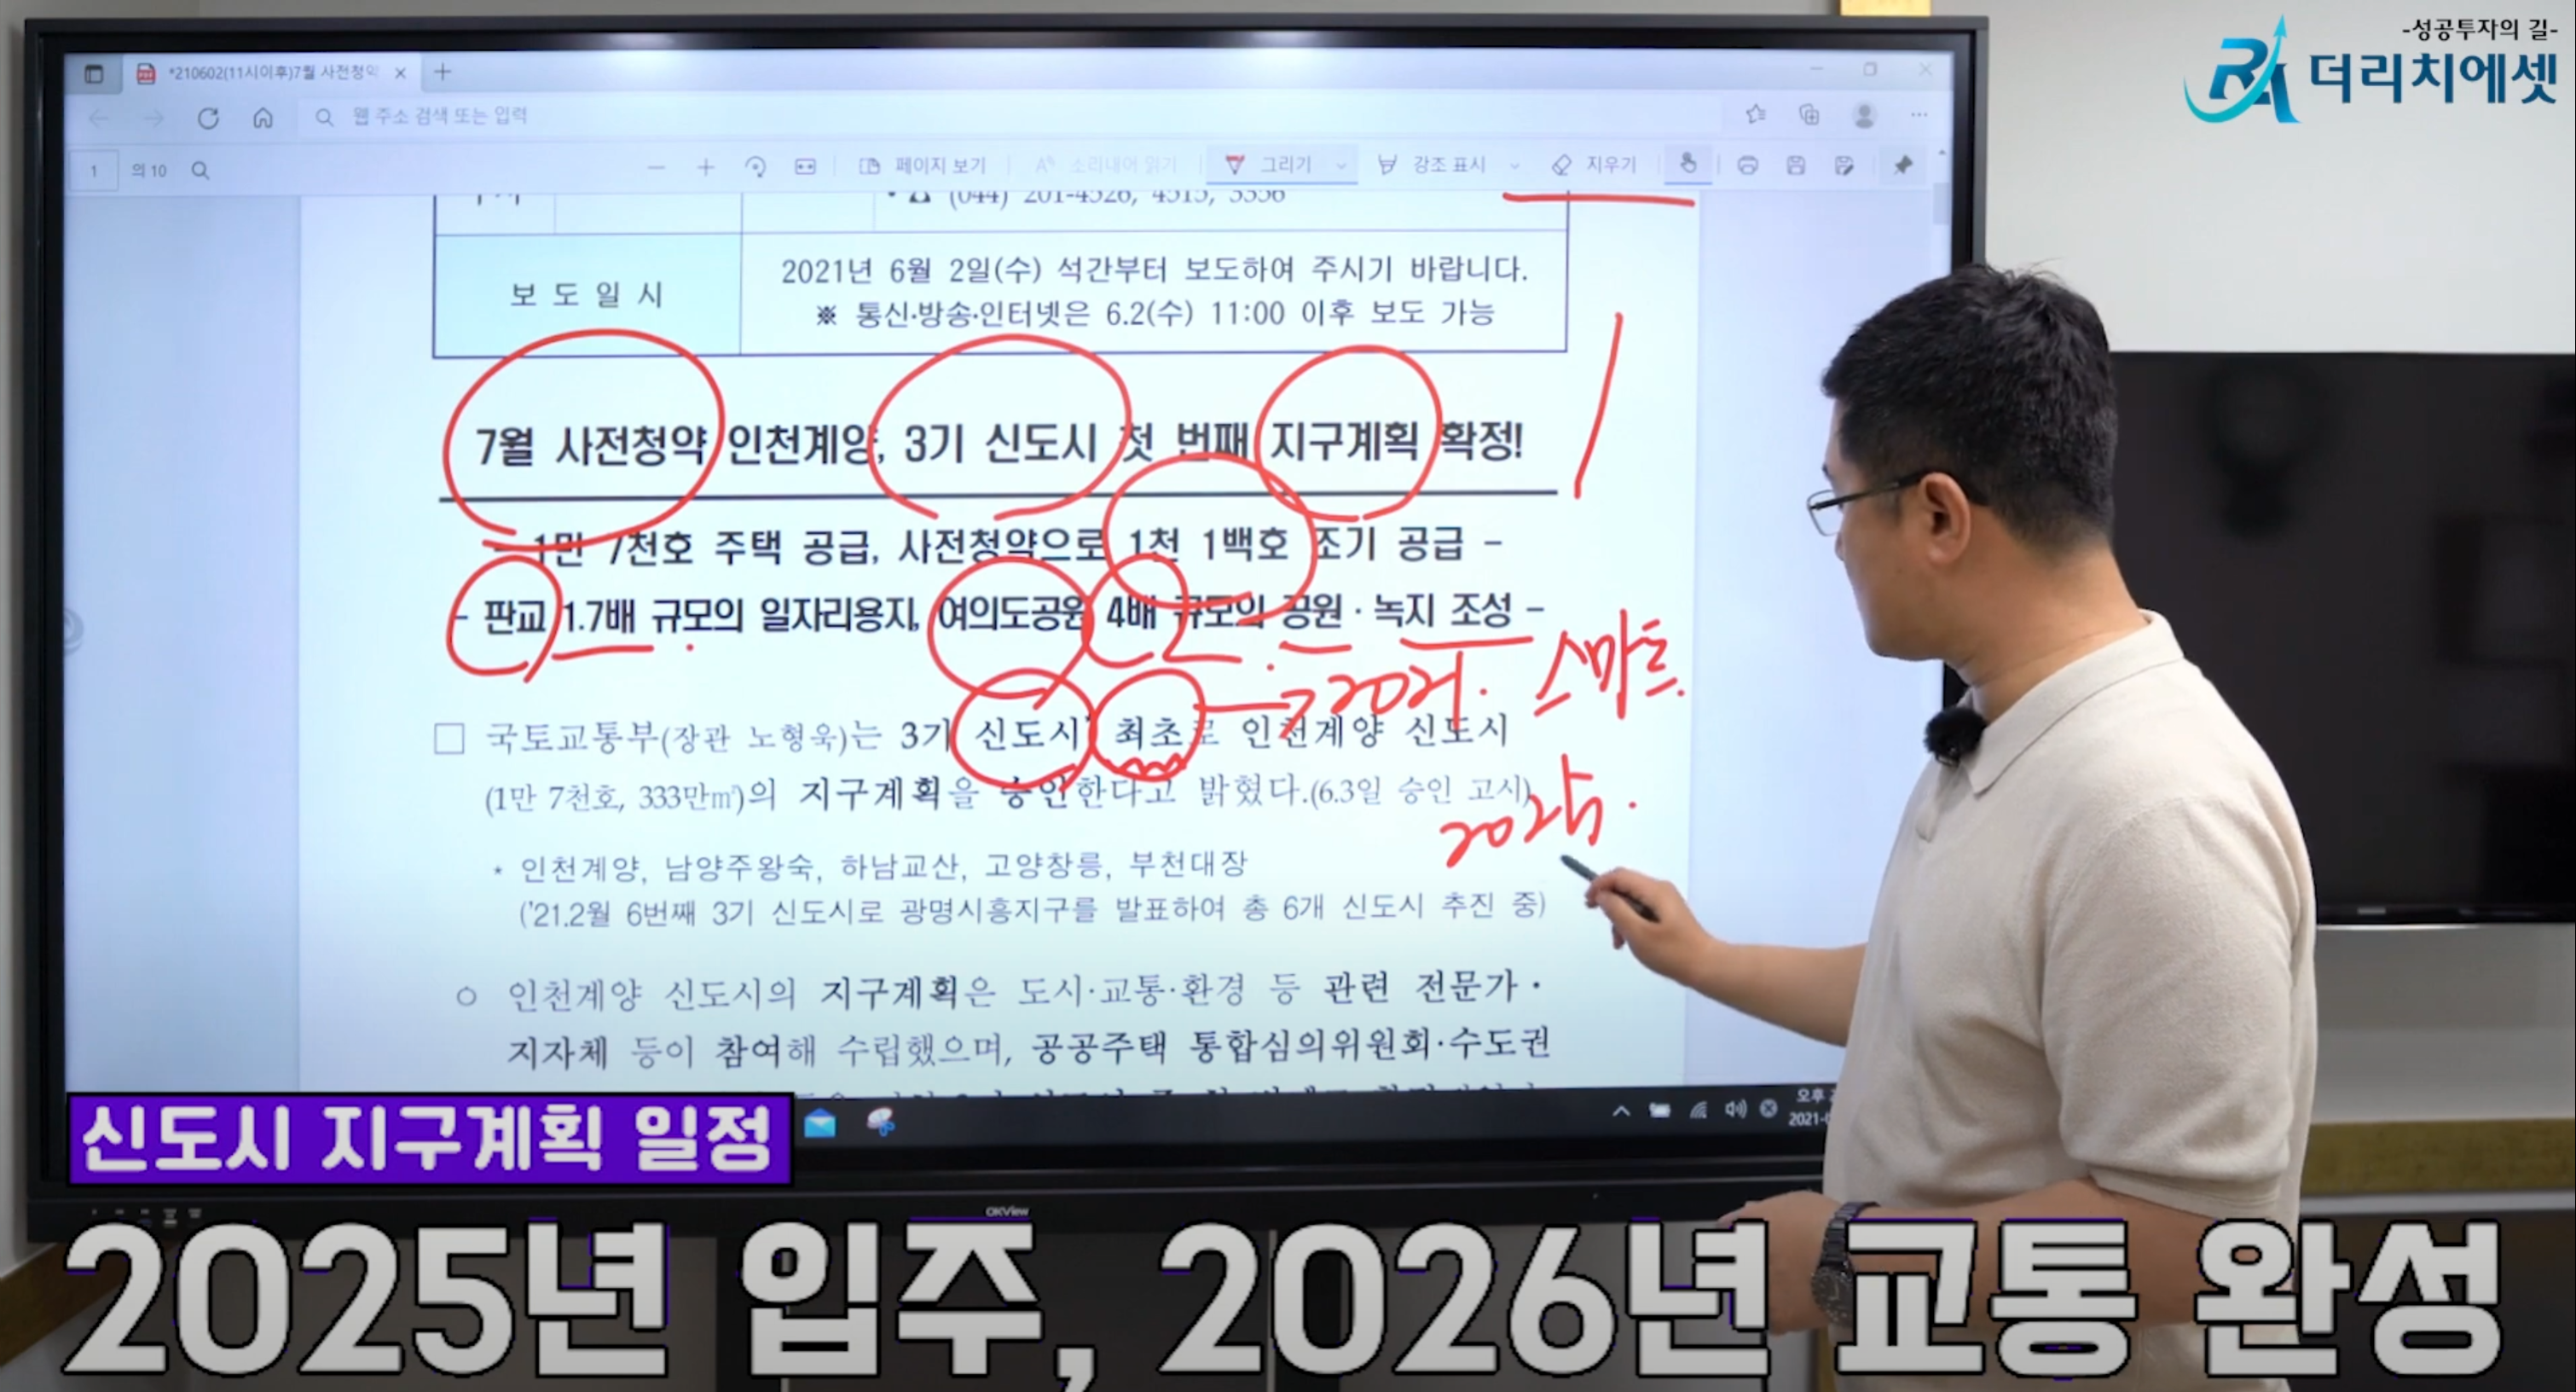 -성공투자의 길-
더리치에셋
*210602(11시이후)7월 사전청약
웹 주소 검색 또는 입력
1 의 10 페이지 보기 소리내어 읽기 그리기 강조 표시 지우기
(044) 201-4526, 4515, 3356
보 도 일 시
2021년 6월 2일(수) 석간부터 보도하여 주시기 바랍니다.
※ 통신·방송·인터넷은 6.2(수) 11:00 이후 보도 가능
7월 사전청약 인천계양, 3기 신도시 첫 번째 지구계획 확정!
- 1만 7천호 주택 공급, 사전청약으로 1천 1백호 조기 공급 -
- 판교 1.7배 규모의 일자리용지, 여의도공원 4배 규모의 공원·녹지 조성 -
2021. 스마트
□ 국토교통부(장관 노형욱)는 3기 신도시* 최초로 인천계양 신도시
(1만 7천호, 333만㎡)의 지구계획을 승인한다고 밝혔다.(6.3일 승인 고시)
2025.
* 인천계양, 남양주왕숙, 하남교산, 고양창릉, 부천대장
('21.2월 6번째 3기 신도시로 광명시흥지구를 발표하여 총 6개 신도시 추진 중)
○ 인천계양 신도시의 지구계획은 도시·교통·환경 등 관련 전문가·
지자체 등이 참여해 수립했으며, 공공주택 통합심의위원회·수도권
오후
신도시 지구계획 일정
OKView
2025년 입주, 2026년 교통 완성